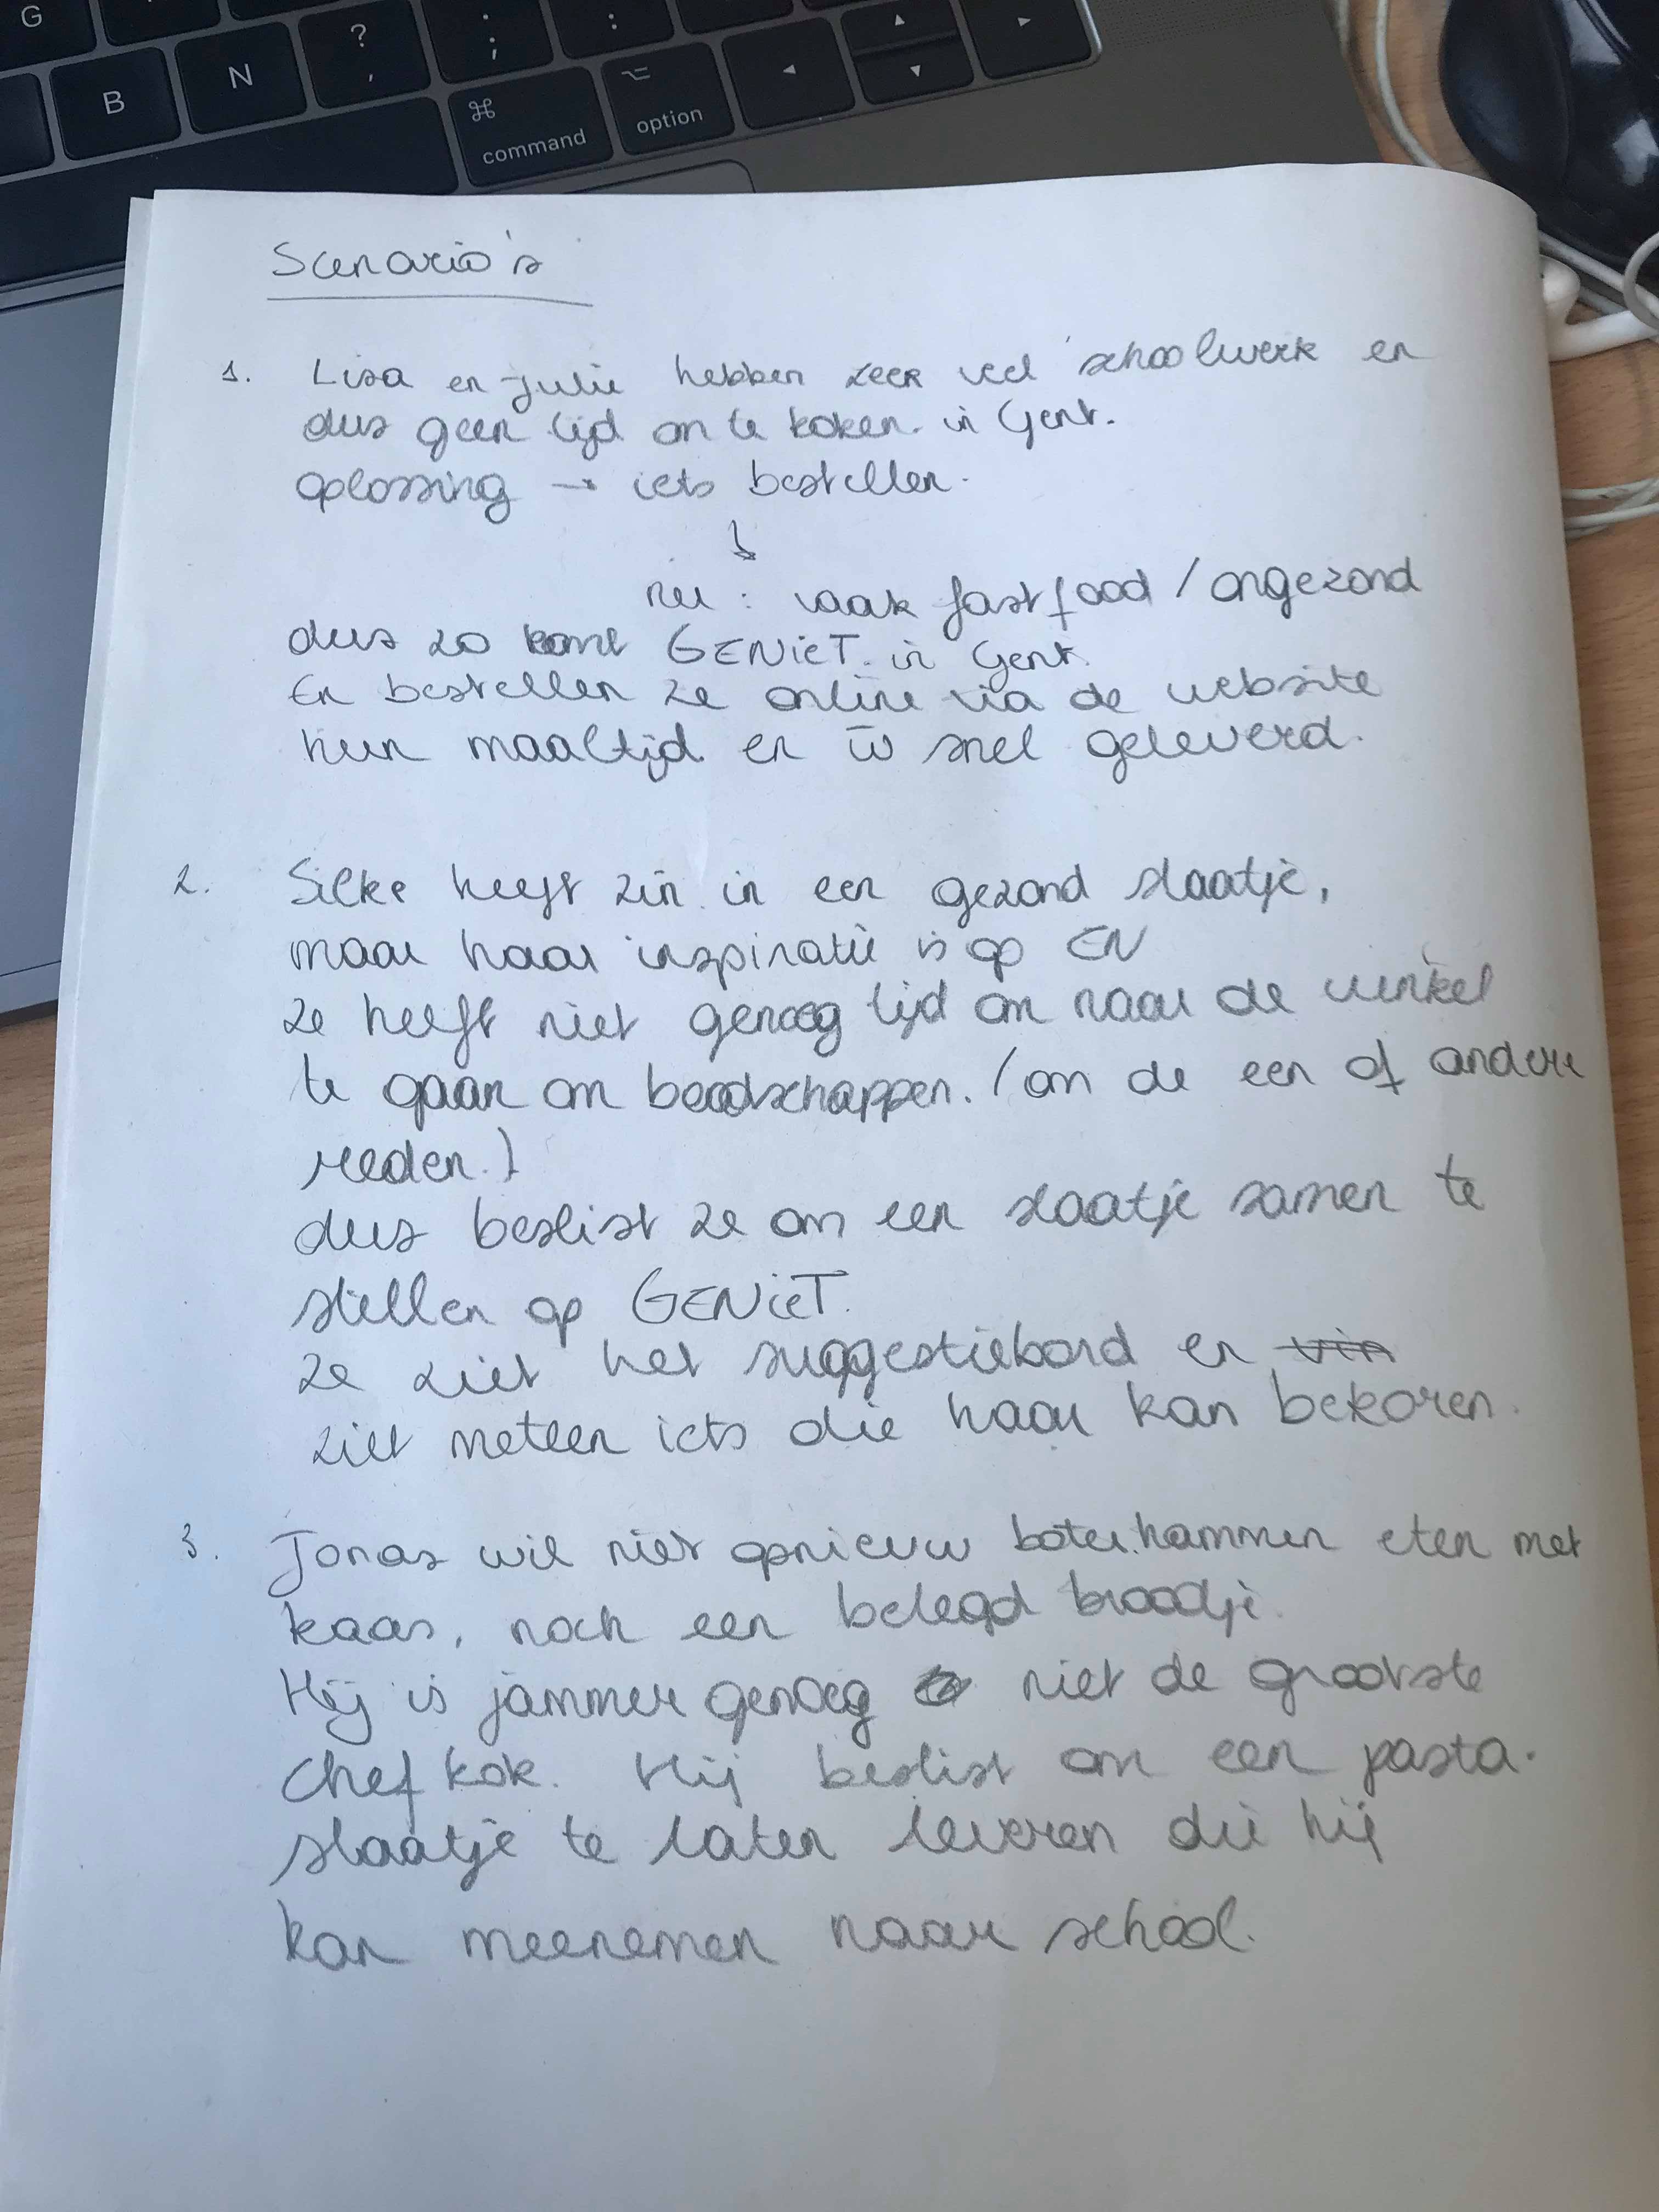 G
B
N
?
,
:
;
:
.
⌘
command
⌥
option
◄
▲
▼
►
Scenario's
1. Lisa en Julie hebben zeer veel schoolwerk en
dus geen tijd om te koken in Gent.
oplossing → iets bestellen.
↓
nu : vaak fastfood / ongezond
dus zo komt GENieT in Gent.
En bestellen ze online via de website
hun maaltijd en w̄ snel geleverd.
2. Silke heeft zin in een gezond slaatje,
maar haar inspiratie is op EN
ze heeft niet genoeg tijd om naar de winkel
te gaan om boodschappen. (om de een of andere
reeden.)
dus beslist ze om een slaatje samen te
stellen op GENieT.
ze ziet het suggestiebord en
ziet meteen iets die haar kan bekoren.
3. Jonas wil niet opnieuw boterhammen eten met
kaas, noch een belegd broodje.
Hij is jammer genoeg niet de grootste
chef kok. Hij beslist om een pasta-
slaatje te laten leveren die hij
kan meenemen naar school.